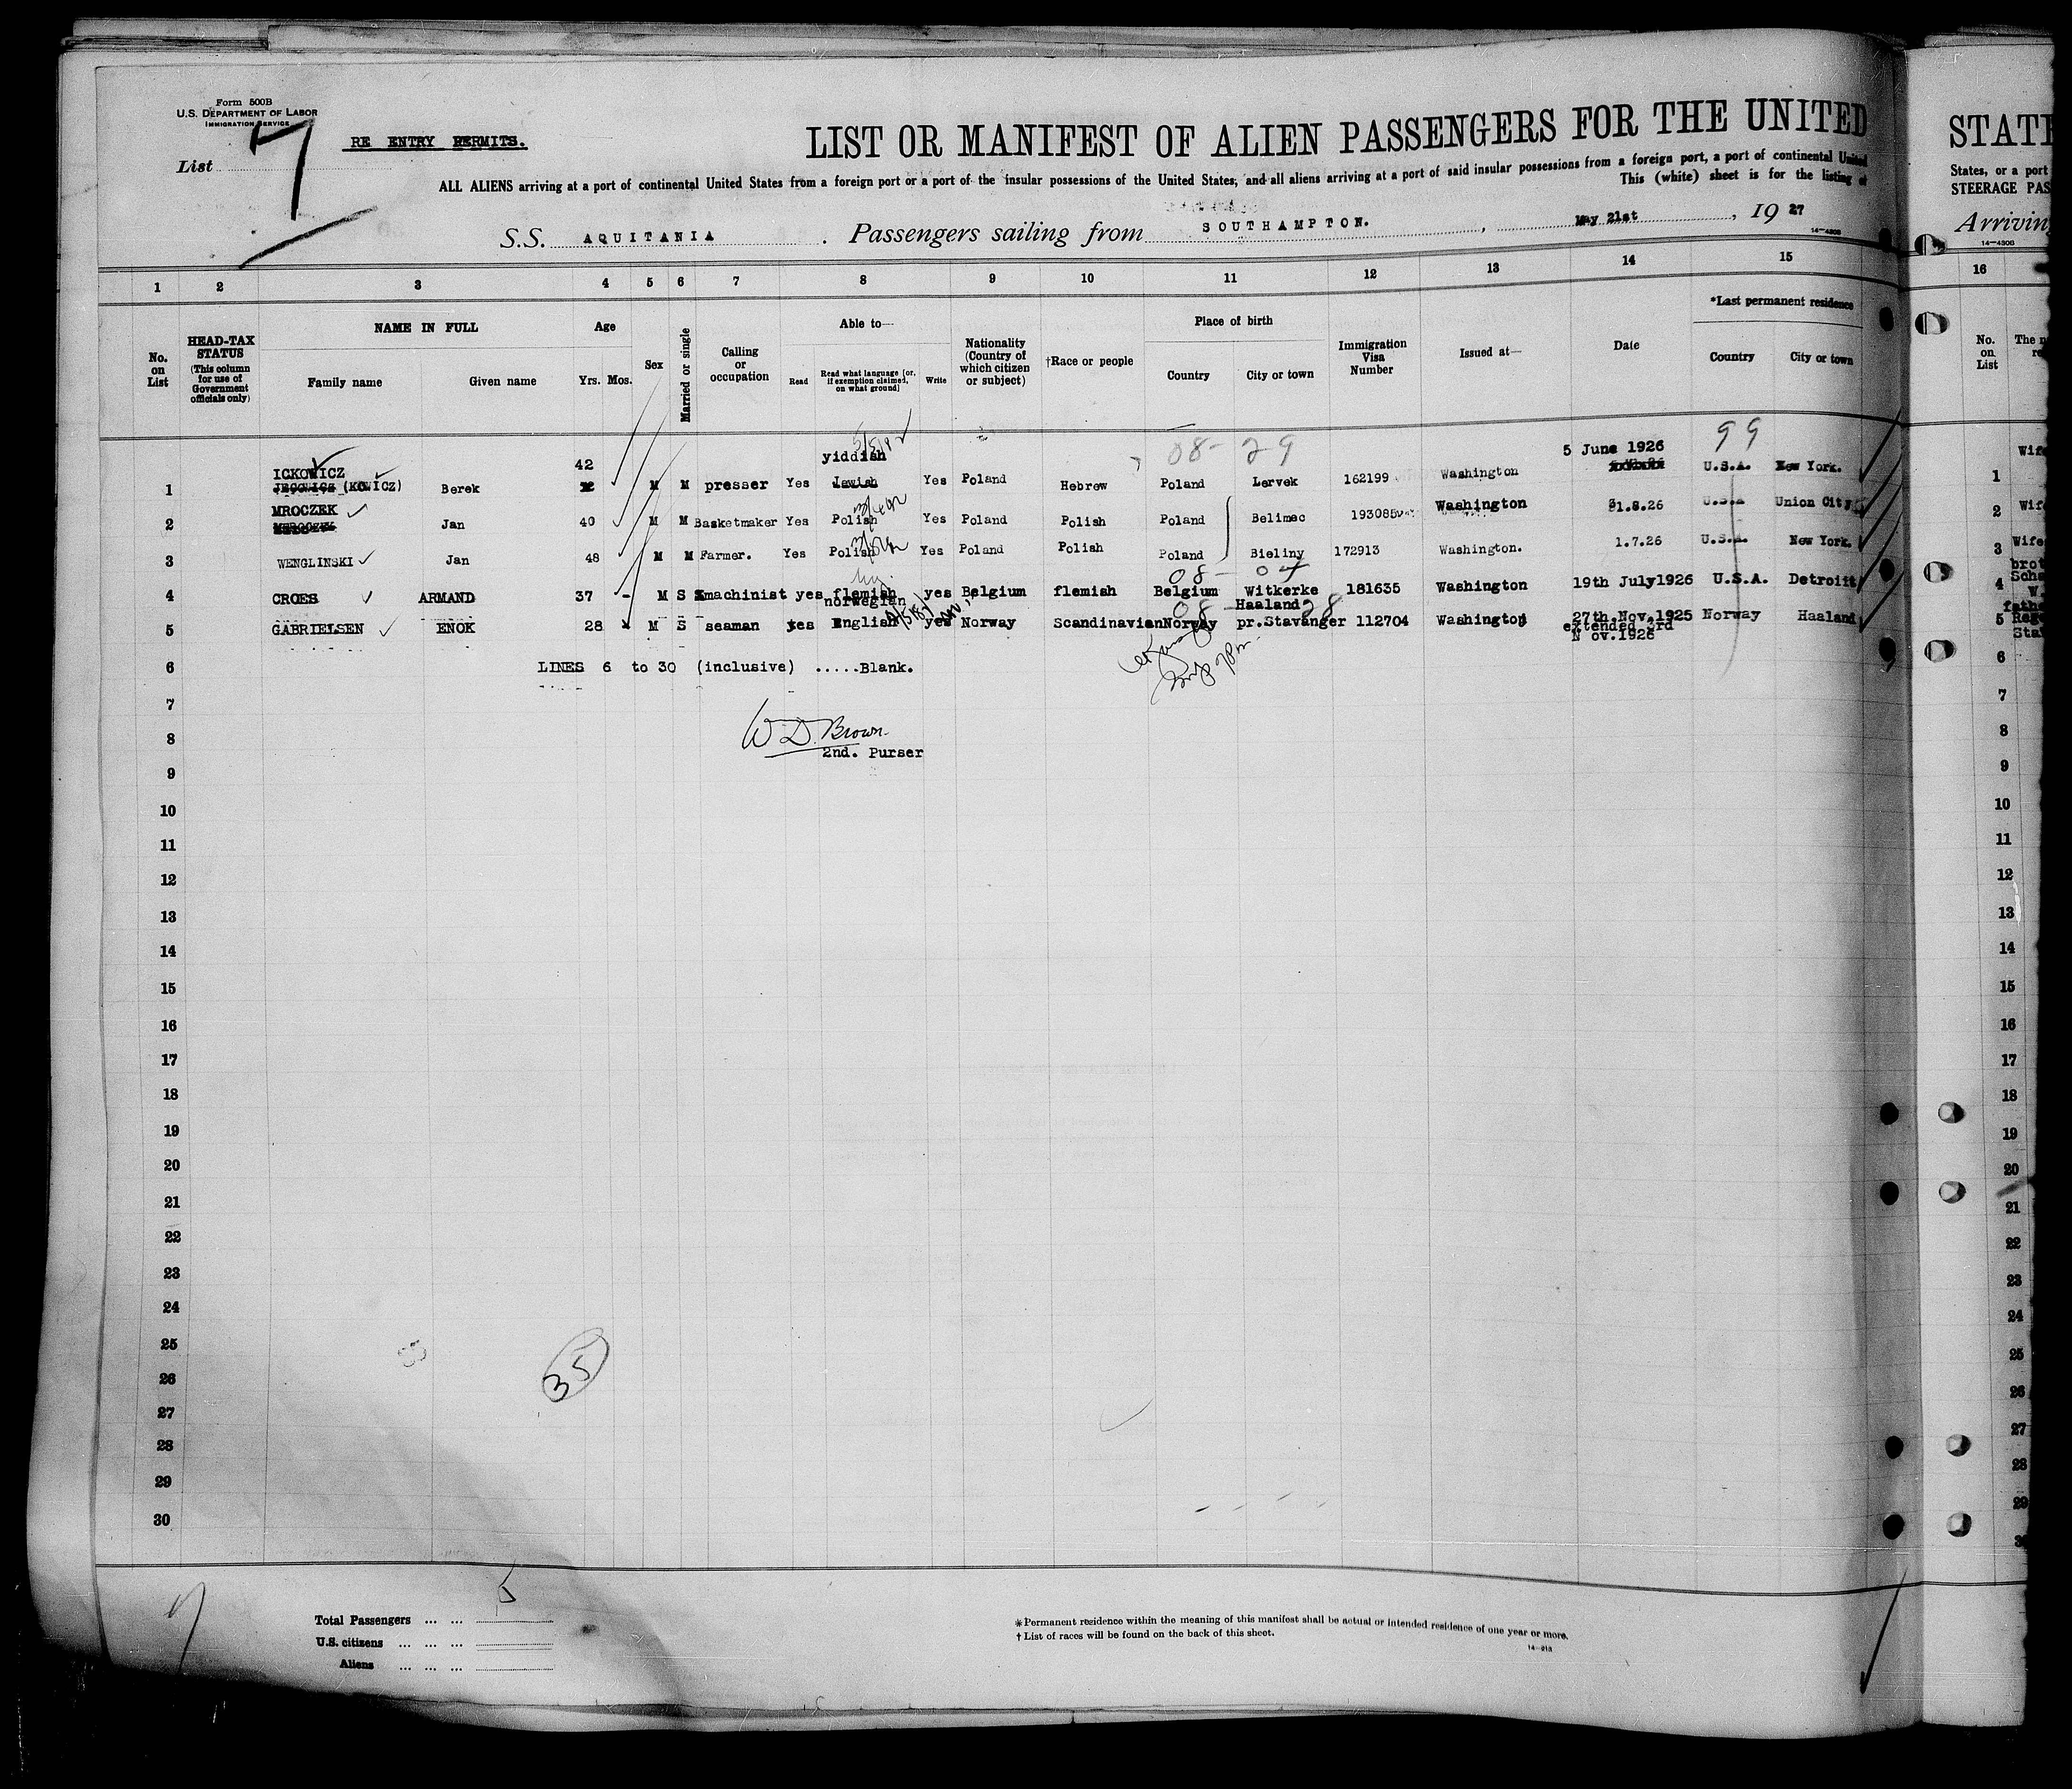 Form 500B
U.S. DEPARTMENT OF LABOR
IMMIGRATION SERVICE
List 7
RE ENTRY PERMITS.
LIST OR MANIFEST OF ALIEN PASSENGERS FOR THE UNITED
ALL ALIENS arriving at a port of continental United States from a foreign port or a port of the insular possessions of the United States, and all aliens arriving at a port of said insular possessions from a foreign port, a port of continental United
This (white) sheet is for the listing of
S.S. AQUITANIA . Passengers sailing from SOUTHAMPTON. , May 21st , 19 27
14-430B
1 2 3 4 5 6 7 8 9 10 11 12 13 14 15
No. on List
HEAD-TAX STATUS (This column for use of Government officials only)
NAME IN FULL
Family name Given name
Age
Yrs. Mos.
Sex
Married or single
Calling or occupation
Able to—
Read
Read what language (or, if exemption claimed, on what ground)
Write
Nationality (Country of which citizen or subject)
†Race or people
Place of birth
Country City or town
Immigration Visa Number
Issued at—
Date
*Last permanent residence
Country City or town
08-29 99
1 ICKOWICZ (KOWICZ) Berek 42 M M presser Yes yiddish Jewish Yes Poland Hebrew Poland Lervek 162199 Washington 5 June 1926 U.S.A. New York.
2 MROCZEK Jan 40 M M Basketmaker Yes Polish Yes Poland Polish Poland Belimec 193085 Washington 31.8.26 U.S.A Union City
3 WENGLINSKI Jan 48 M M Farmer. Yes Polish Yes Poland Polish Poland Bieliny 172913 Washington. 1.7.26 U.S.A. New York.
08-04
4 CROES ARMAND 37 - M S machinist yes flemish yes Belgium flemish Belgium Witkerke 181635 Washington 19th July1926 U.S.A. Detroit
08-28
5 GABRIELSEN ENOK 28 M S seaman yes norwegian English yes Norway Scandinavian Norway Haaland pr.Stavanger 112704 Washington 27th.Nov.1925 extended 3rd Nov.1926 Norway Haaland
LINES 6 to 30 (inclusive) .....Blank.
W D. Brown
2nd. Purser
6
7
8
9
10
11
12
13
14
15
16
17
18
19
20
21
22
23
24
25
26
27
28
29
30
35
Total Passengers ... ... 5
U.S. citizens ... ... ...
Aliens ... ... ...
*Permanent residence within the meaning of this manifest shall be actual or intended residence of one year or more.
†List of races will be found on the back of this sheet.
STATE
States, or a port
STEERAGE PAS
Arriving
14-430B
16
No. on List
The n
re
1 Wife
2 Wife
3 Wife
brot
4 Scha
W.
fathe
5 Rege
Sta
6
7
8
9
10
11
12
13
14
15
16
17
18
19
20
21
22
23
24
25
26
27
28
29